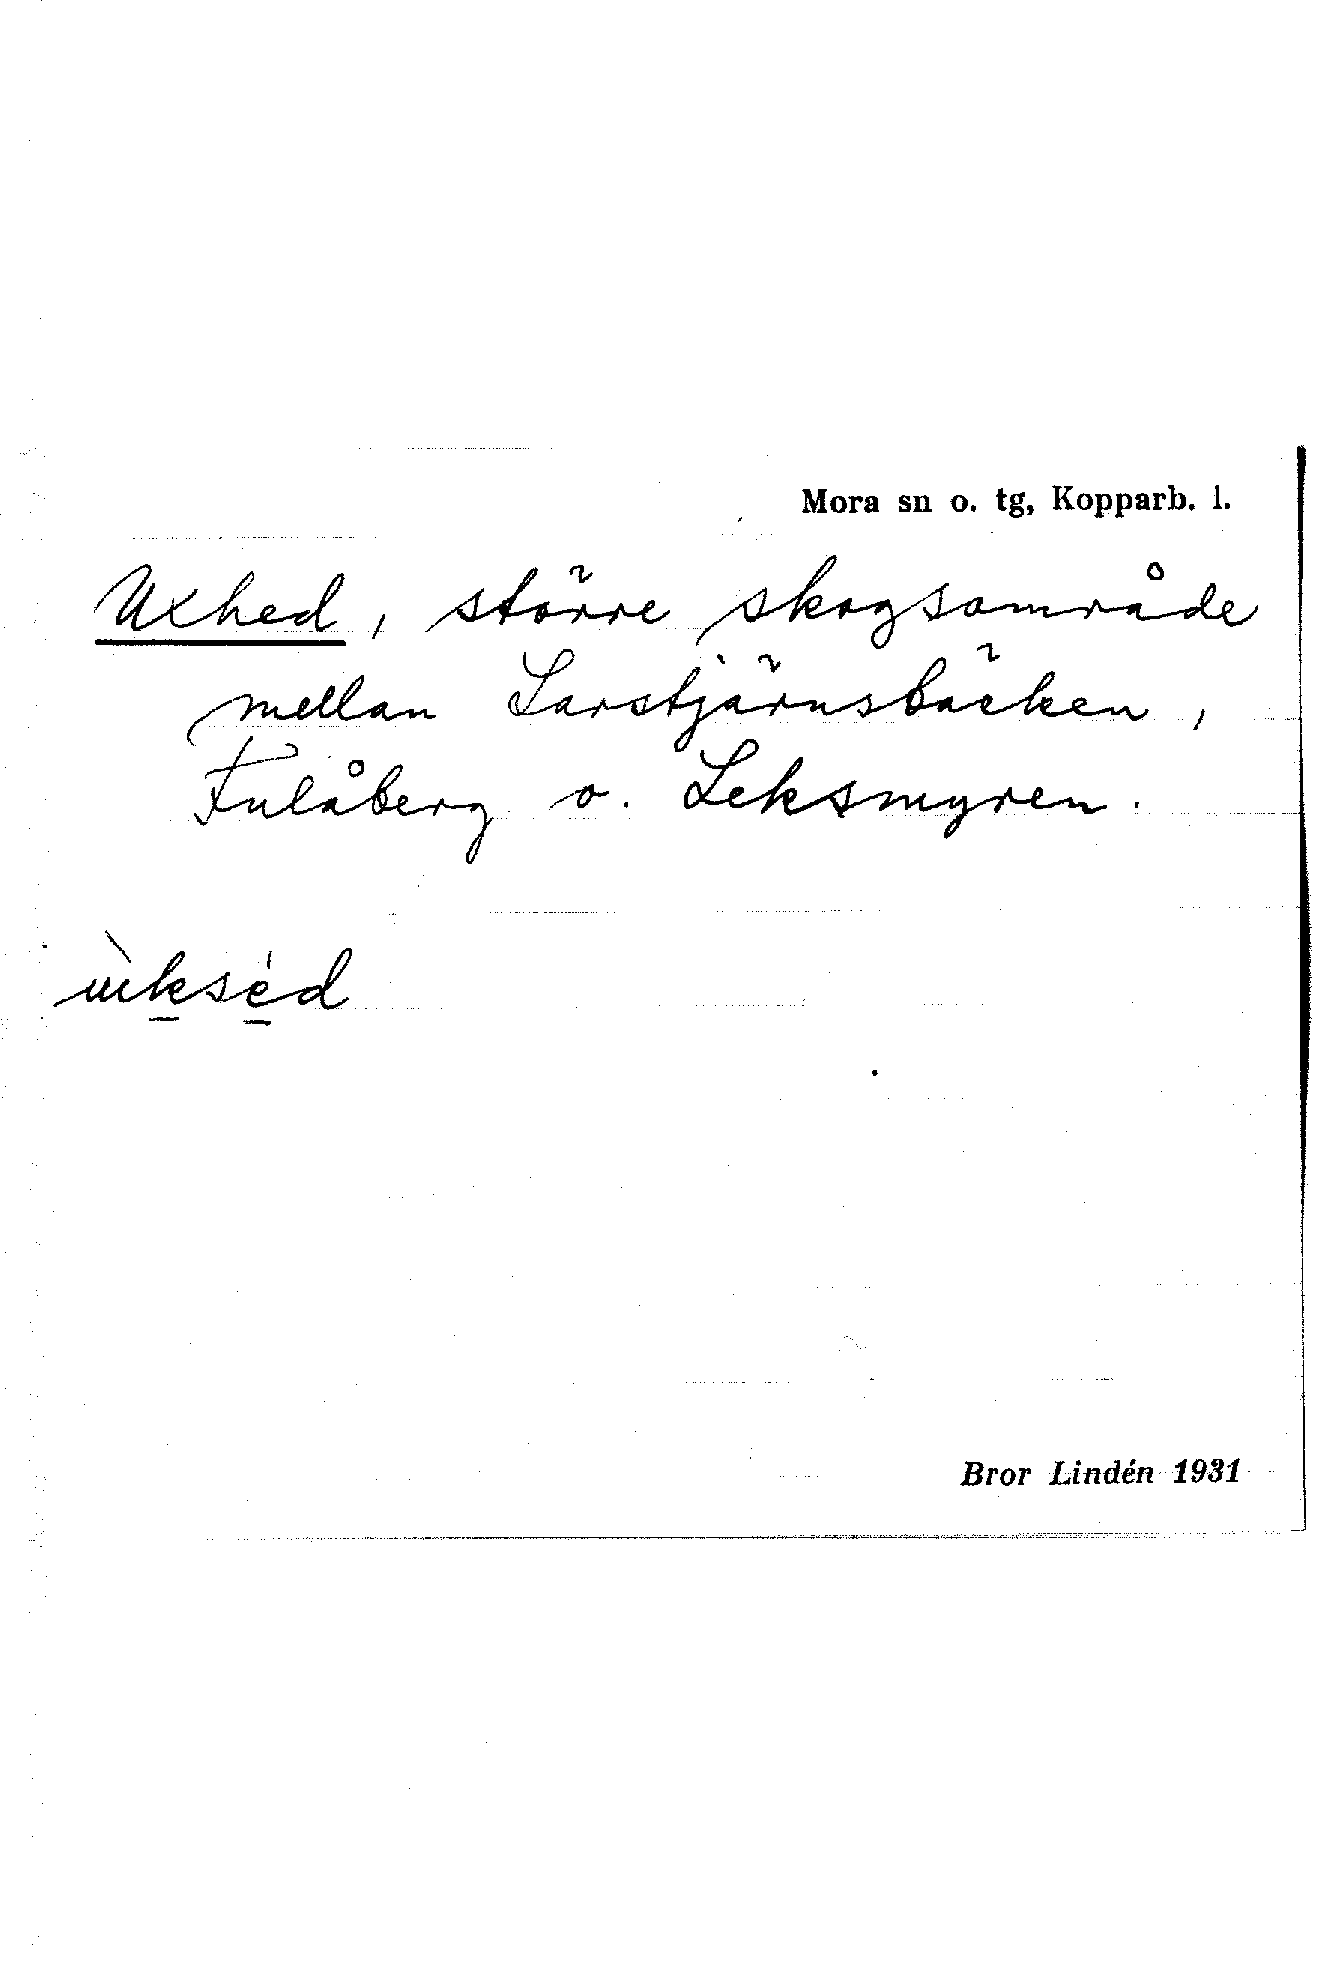 Mora sn o. tg, Kopparb. l.
Uxhed, större skogsområde
mellan Larstjärnsbäcken,
Fulåberg o. Leksmyren.
ùksèd
Bror Lindén 1931